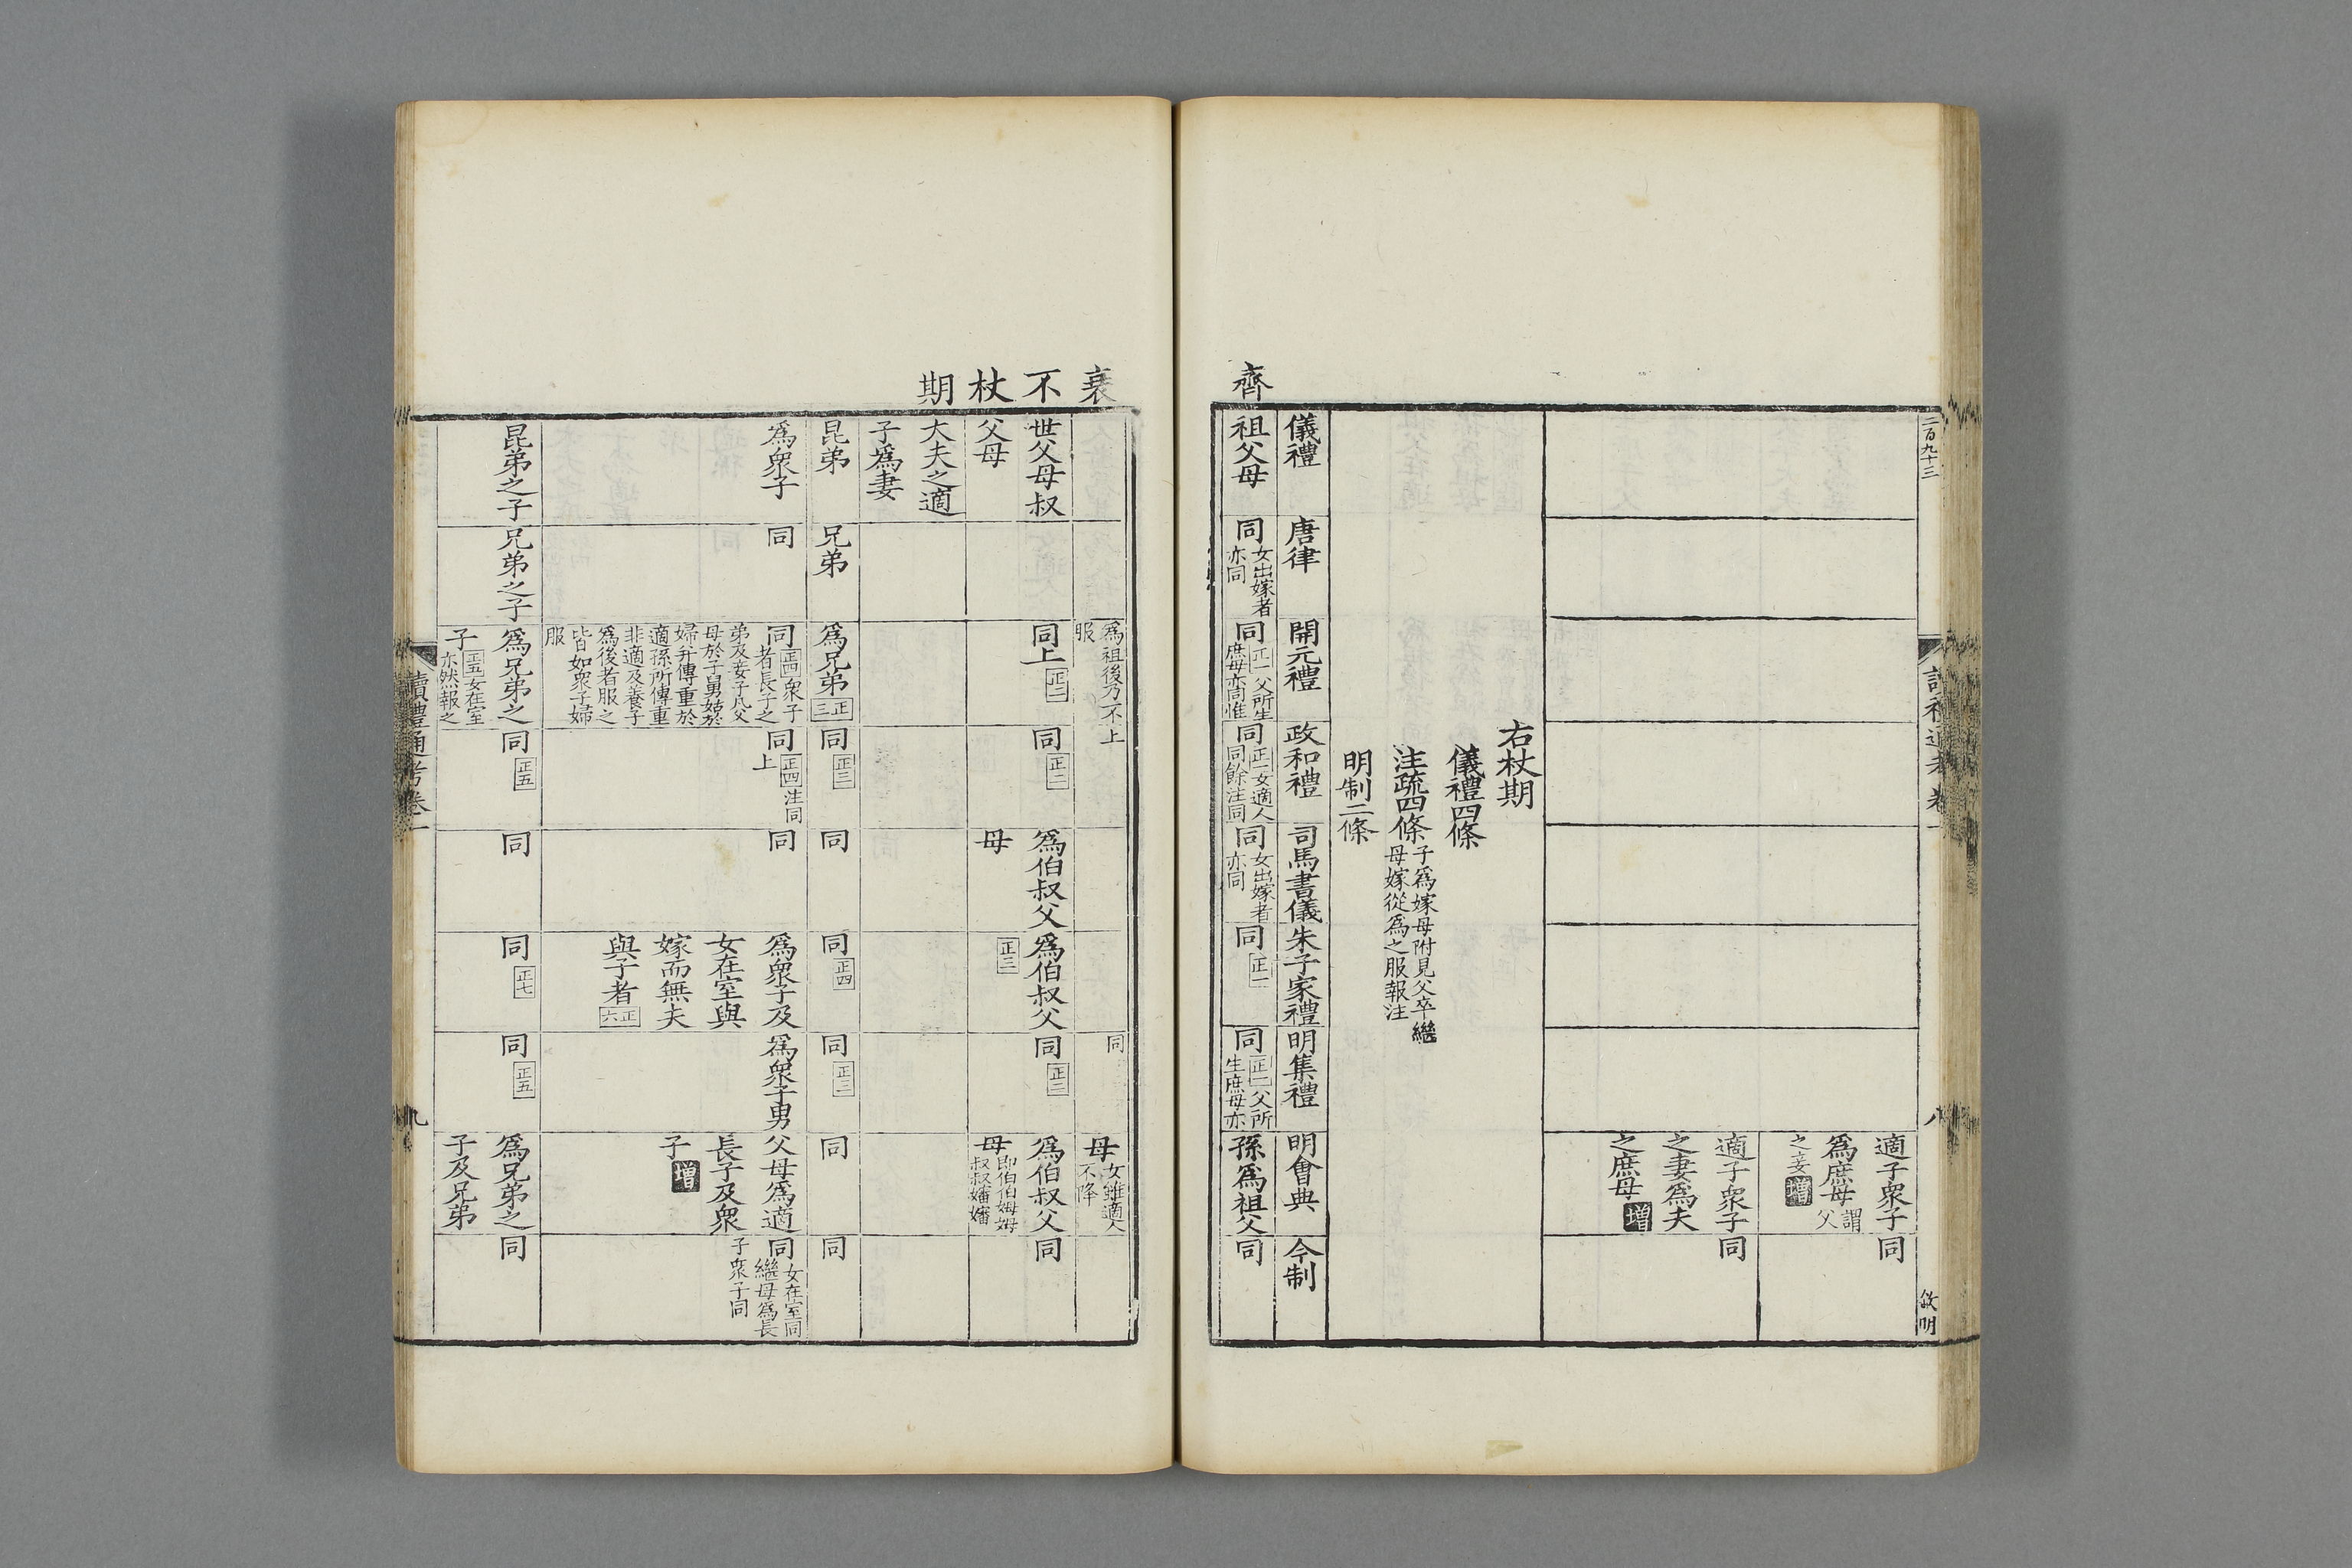 二百九十三
讀禮通考卷一
八
攽明
適子衆子
爲庶母謂父
之妾增
同
適子衆子
之妻爲夫
之庶母增
同
右杖期
儀禮四條
注疏四條子爲嫁母附見父卒繼
母嫁從爲之服報注
明制二條
儀禮
唐律
開元禮
政和禮
司馬書儀
朱子家禮
明集禮
明會典
今制
齊
祖父母
同女出嫁者
亦同
同正一父所生
庶母亦同惟
同正一女適人
同餘注同
同女出嫁者
亦同
同正一
同正一父所
生庶母亦
孫爲祖父
同
衰不杖期
爲祖後乃不上
服
同
母女雖適人
不降
世父母叔
父母
同上正二
同正二
爲伯叔父
母
爲伯叔父
正三
同正二
爲伯叔父
母即伯伯姆姆
叔叔嬸嬸
同
大夫之適
子爲妻
昆弟
兄弟
爲兄弟正三
同正三
同
同正四
同正三
同
同
爲衆子
同
同正四衆子
者長子之
弟及妾子凡父
母於子舅姑於
婦幷傳重於
適孫所傳重
非適及養子
爲後者服之
皆如衆子婦
服
同正四注同
上
同
爲衆子及
女在室與
嫁而無夫
與子者正六
爲衆子男
父母爲適
長子及衆
子增
同女在室同
繼母爲長
子衆子同
昆弟之子
兄弟之子
爲兄弟之
子正五女在室
亦然報之
同正五
同
同正七
同正五
爲兄弟之
子及兄弟
同
讀禮通考卷一
九